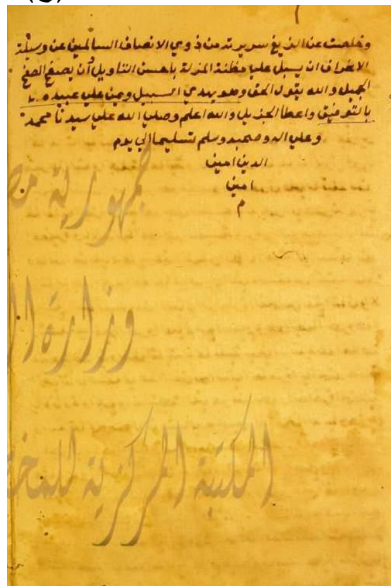 وخلصت عن الزيغ سريرته من ذوي الانصاف السالمين عن وسيلة
الاعتراف ان يسبل على مظنة المزلة باحسن التاويل وان يصفح الصفح
الجميل والله يقول الحق وهو يهدي السبيل ويمن على عبيده
بالتوفيق واعطا الجزيل والله اعلم وصلى الله على سيدنا محمد
وعلى اله وصحبه وسلم تسليما الى يوم
الدين امين
امين
م
جمهورية مص
وزارة ال
المكتبة المركزية للمخ